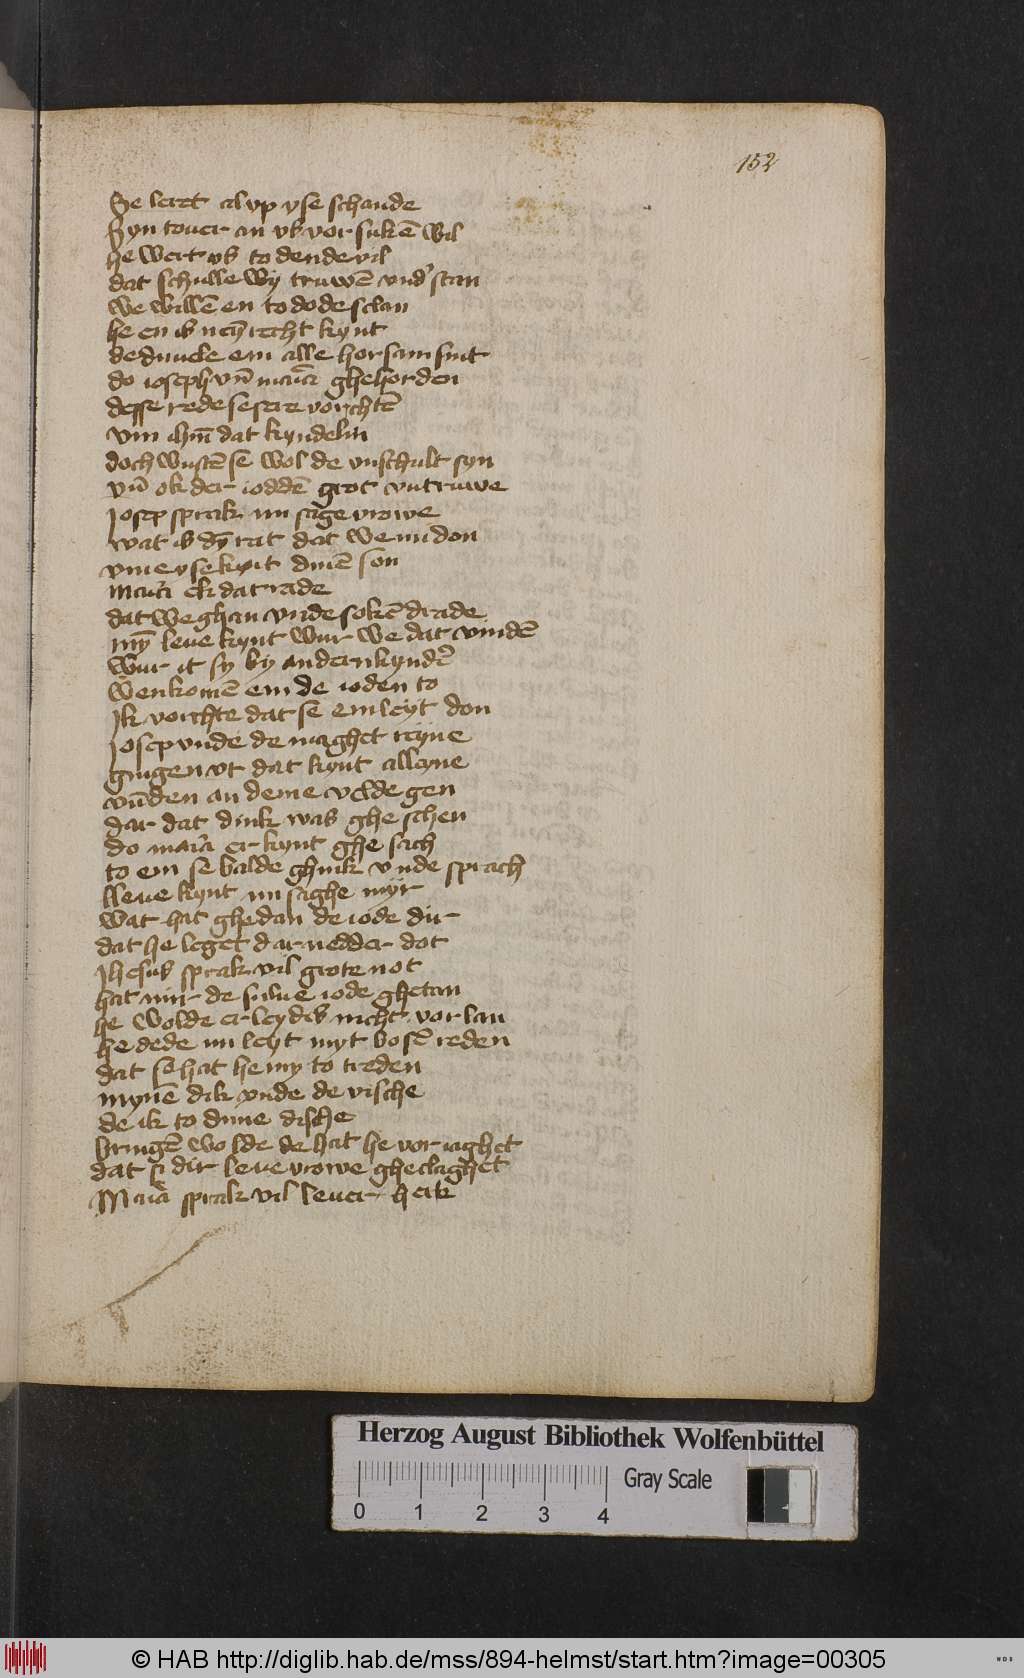 152
He leret al vp vse schande
Syn touer an vs vorsukē wil
he wert vs to dende vil
dat schulle wy truwē vnd' stan
we willē en to dode sclan
he en is neȳ recht kynt
de duuele em alle horsam sint
do ioseph vn̄ maria ghehorden
desse rede se sere vorchtē
vm ihm̄ dat kyndelin
doch wustē se wol de vnschult syn
vn̄ ok der ioddē grot vntruwe
Josep sprak nu sage vrowe
wat is dȳ rat dat we nu don
vme vse kynt dinē son
maria ek dat rade
dat we ghan vnde sokē drade
mȳ leue kynt wur we dat vindē
wur it sy by andern kynd'
wen komē em de ioden to
Ik vorchte dat se em leyt don
Josep vnde de maghet reyne
gingen vt dat kynt alleyne
vūden an deme velde gen
dar dat dink was ghe schen
do maria er kynt ghe sach
to em se balde ghink vnde sprach
lleue kynt nu saghe myr
wat hat ghedan de iode dir
dat he leget dar nedder dot
Jhesus sprak vil grote not
hat mir de sulue iode ghetan
he wolde er leydes nicht vor lan
he dede mi leyt myt bosē reden
dat se hat he my to treden
mynē dik vnde de vische
de ik to dime dische
bringē wolde de hat he vor iaghet
dat si dir leue vrowe gheclaghet
Maria sprak vil leuer herte
Herzog August Bibliothek Wolfenbüttel
0 1 2 3 4
Gray Scale
© HAB http://diglib.hab.de/mss/894-helmst/start.htm?image=00305